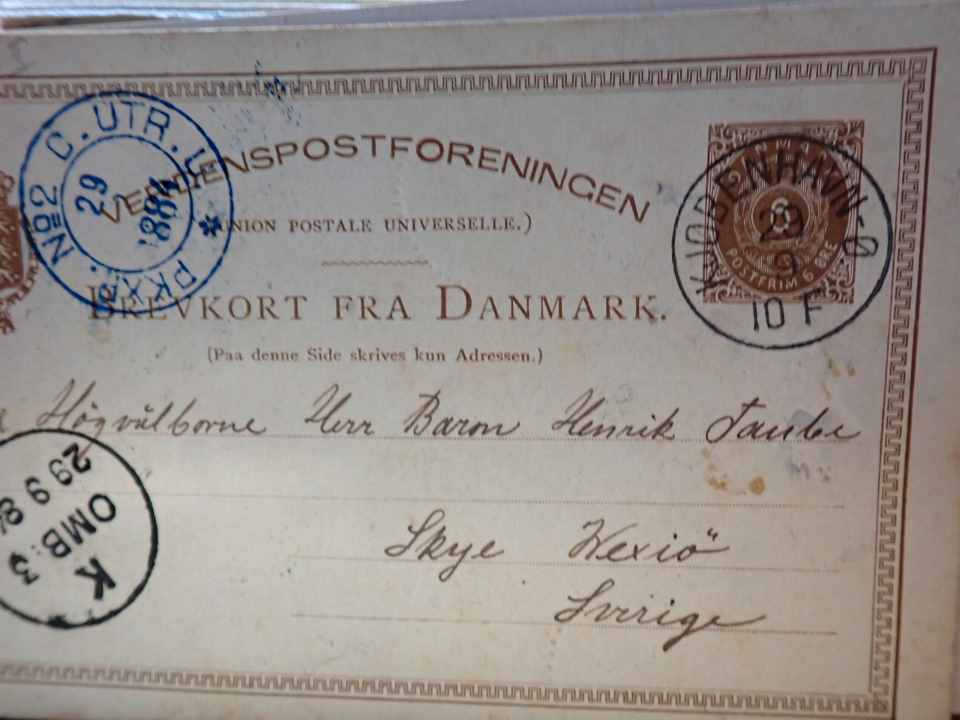 VERDENSPOSTFORENINGEN
(UNION POSTALE UNIVERSELLE.)
BREVKORT FRA DANMARK.
(Paa denne Side skrives kun Adressen.)
DANMARK
6
POSTFRIM 6 ØRE
KJØBENHAVN-Ø
29
9
10 F
PKXP. No 2 C. UTR. U
29
9
1884
Högvälborne Herr Baron Henrik Taube
K
OMB: 3
29 9 84
Skye Wexiö
Sverige